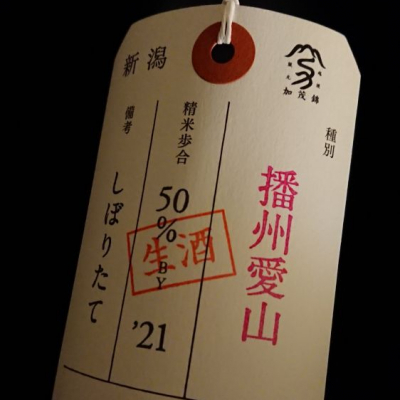 加茂錦
種別
播州愛山
精米歩合
50% BY
'21
生酒
新潟
備考
しぼりたて